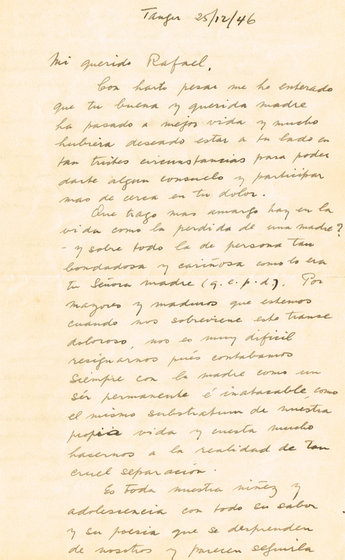 Tanger 25/12/46
Mi querido Rafael,
Con harto pesar me he enterado
que tu buena y querida madre
ha pasado a mejor vida y mucho
hubiera deseado estar a tu lado en
tan tristes circunstancias para poder
darte algun consuelo y participar
mas de cerca en tu dolor.
Que trago mas amargo hay en la
vida como la perdida de una madre?
- y sobre todo la de persona tan
bondadosa y cariñosa como lo era
tu Señora madre (q.e.p.d). Por
mayores y maduros que estemos
cuando nos sobreviene este transe
doloroso, nos es muy dificil
resignarnos pués contabamos
siempre con la madre como un
sér permanente é inatacable como
el mismo substratum de nuestra
propia vida y cuesta mucho
hacernos a la realidad de tan
cruel separación.
Es toda nuestra niñez y
adolescencia con todo su sabor
y su poesia que se desprenden
de nosotros y parecen seguirla